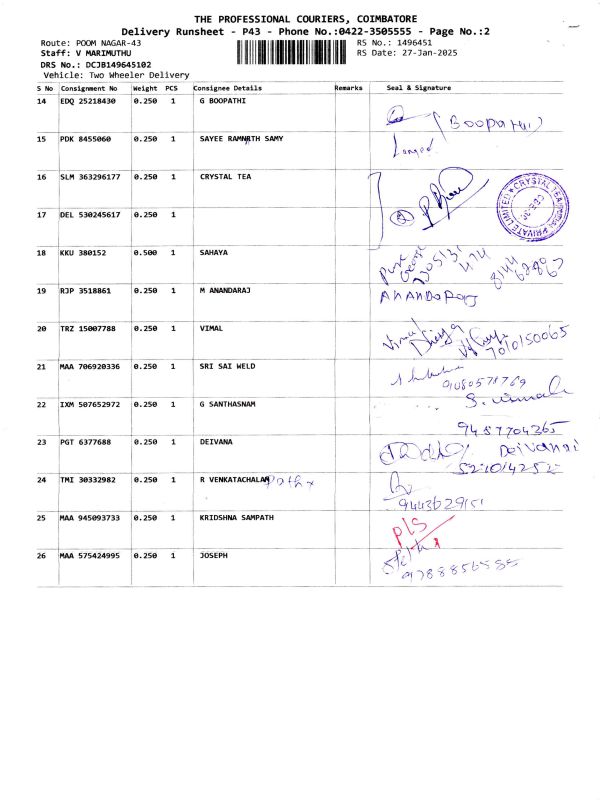 THE PROFESSIONAL COURIERS, COIMBATORE
Delivery Runsheet - P43 - Phone No.:0422-3505555 - Page No.:2
Route: POOM NAGAR-43
RS No.: 1496451
Staff: V MARIMUTHU
RS Date: 27-Jan-2025
DRS No.: DCJB149645102
Vehicle: Two Wheeler Delivery
S No Consignment No Weight PCS Consignee Details Remarks Seal & Signature
14 EDQ 25218430 0.250 1 G BOOPATHI
(Boopathi)
15 PDK 8455060 0.250 1 SAYEE RAMNATH SAMY
16 SLM 363296177 0.250 1 CRYSTAL TEA
CRYSTAL TEA PRIVATE LIMITED
17 DEL 530245617 0.250 1
18 KKU 380152 0.500 1 SAHAYA
19 RJP 3518861 0.250 1 M ANANDARAJ
ANANDARAJ
20 TRZ 15007788 0.250 1 VIMAL
Vimal
7010150065
21 MAA 706920336 0.250 1 SRI SAI WELD
9080571769
22 IXM 507652972 0.250 1 G SANTHASNAM
S. vimala
9487704365
23 PGT 6377688 0.250 1 DEIVANA
Deivanai
24 TMI 30332982 0.250 1 R VENKATACHALAM
25 MAA 945093733 0.250 1 KRIDSHNA SAMPATH
P/S
26 MAA 575424995 0.250 1 JOSEPH